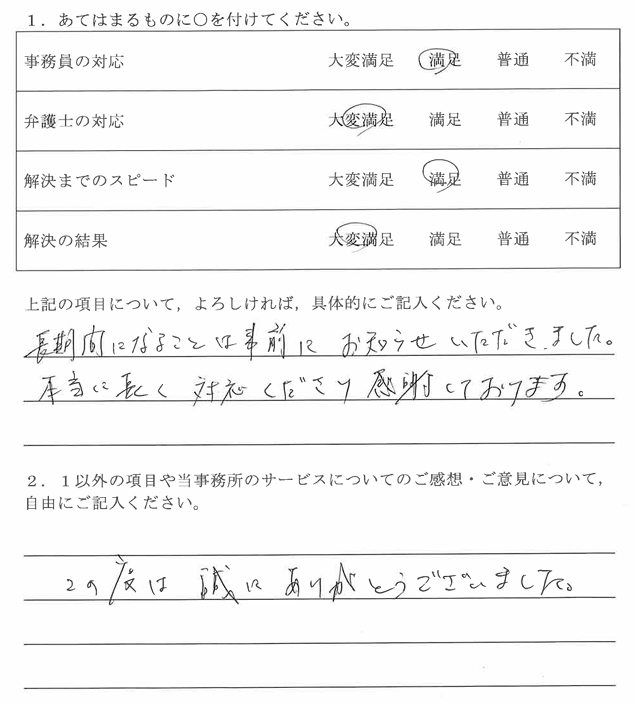 1．あてはまるものに○を付けてください。
事務員の対応 大変満足 満足 普通 不満
弁護士の対応 大変満足 満足 普通 不満
解決までのスピード 大変満足 満足 普通 不満
解決の結果 大変満足 満足 普通 不満
上記の項目について，よろしければ，具体的にご記入ください。
長期間になることは事前に お知らせ いただきました。
本当に長く 対応くださり 感謝しております。
2．1以外の項目や当事務所のサービスについてのご感想・ご意見について，
自由にご記入ください。
この度は 誠に ありがとうございました。